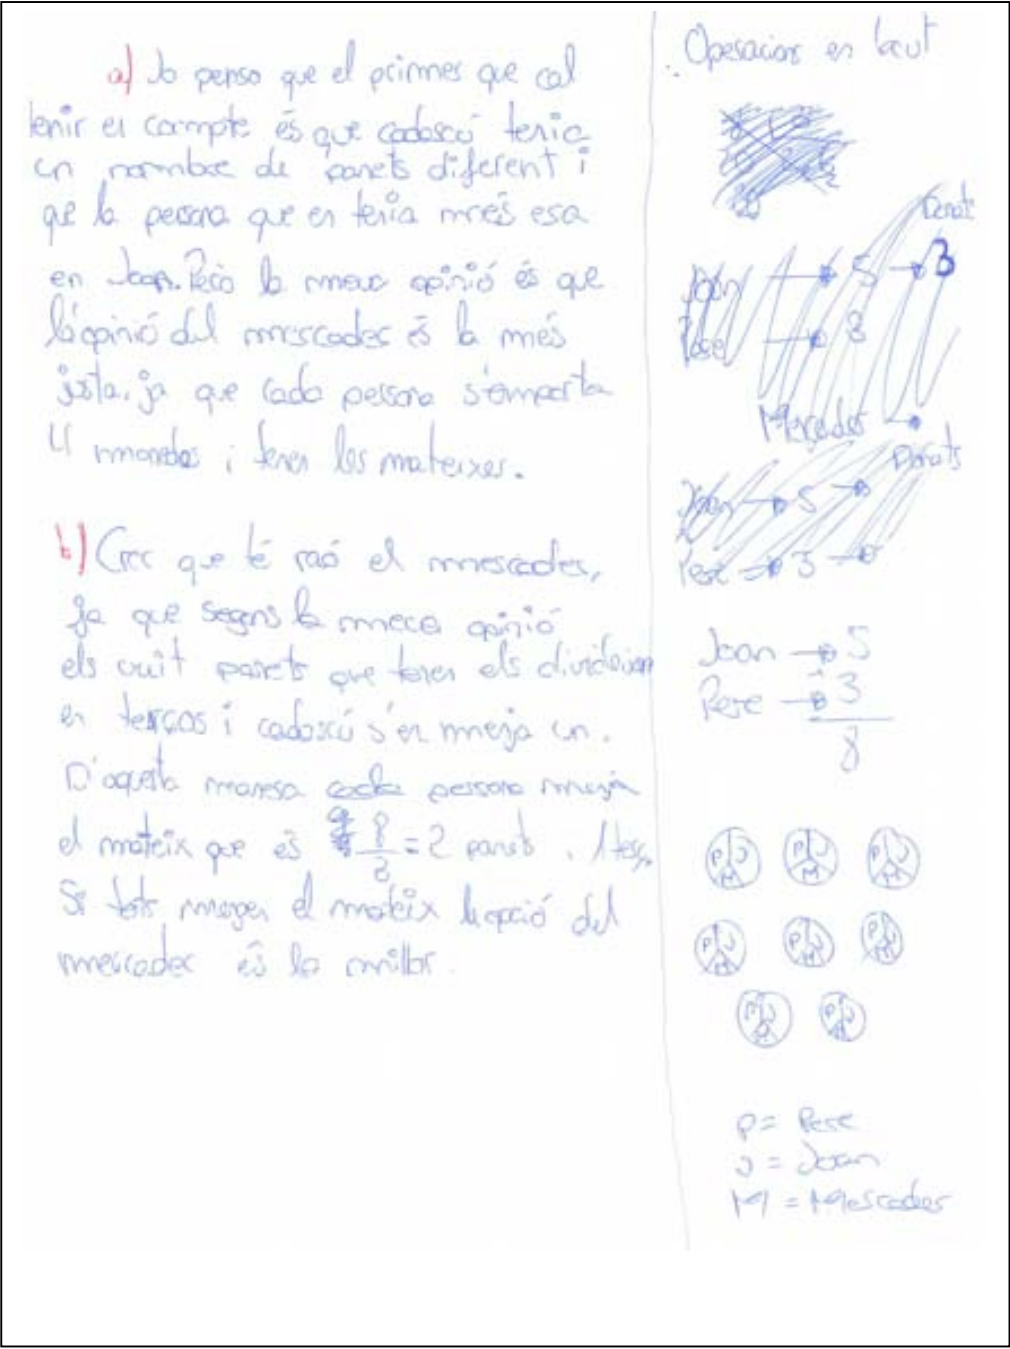 a) Jo penso que el primer que cal
tenir en compte és que cadascú tenia
un nombre de panets diferent i
que la persona que en tenia més era
en Joan. Però la meva opinió és que
l'opinió del mercader és la més
justa, ja que cada persona s'emporta
4 monedes i tenen les mateixes.
b) Crec que té raó el mercader,
ja que segons la meva opinió
els vuit panets que tenen els divideixen
en terços i cadascú s'en menja un.
D'aquesta manera cada persona menja
el mateix que és 8/3 = 2 panets i 1 terç.
Si tots mengen el mateix l'opció del
mercader és la millor.
Operacions en brut
Donats
Joan → 5 → 3
Pere → 3
Mercader
Donats
Joan → 5 →
Pere → 3 →
Joan → 5
Pere → 3
8
P J M
P J M
P J M
P J M
P J M
P J M
P J M
P J M
P = Pere
J = Joan
M = Mercader